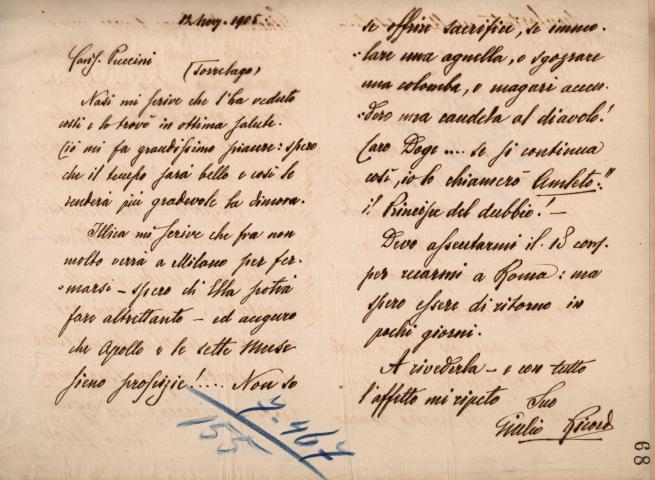 12 Nov. 1905.
Cariss. Puccini
(Torrelago)
Nasi mi scrive che l'ha veduto
costì e lo trovò in ottima salute.
Ciò mi fa grandissimo piacere: spero
che il tempo sarà bello e così le
renderà più gradevole la dimora.
Illica mi scrive che fra non
molto verrà a Milano per fer-
marsi – spero ch'Ella potrà
fare altrettanto – ed auguro
che Apollo e le sette Muse
sieno propizie!.... Non so
7.467
155
se offrire sacrifice, se immo-
lare una agnella, o sgozzare
una colomba, o magari accen-
dere una candela al diavolo!
Caro Doge .... se si continua
così, io lo chiamerò Amleto:"
il Principe del dubbio! –
Devo assentarmi il 18 corr.
per recarmi a Roma: ma
spero essere di ritorno in
pochi giorni.
A rivederla – e con tutto
l'affetto mi ripeto Suo
Giulio Ricordi
68